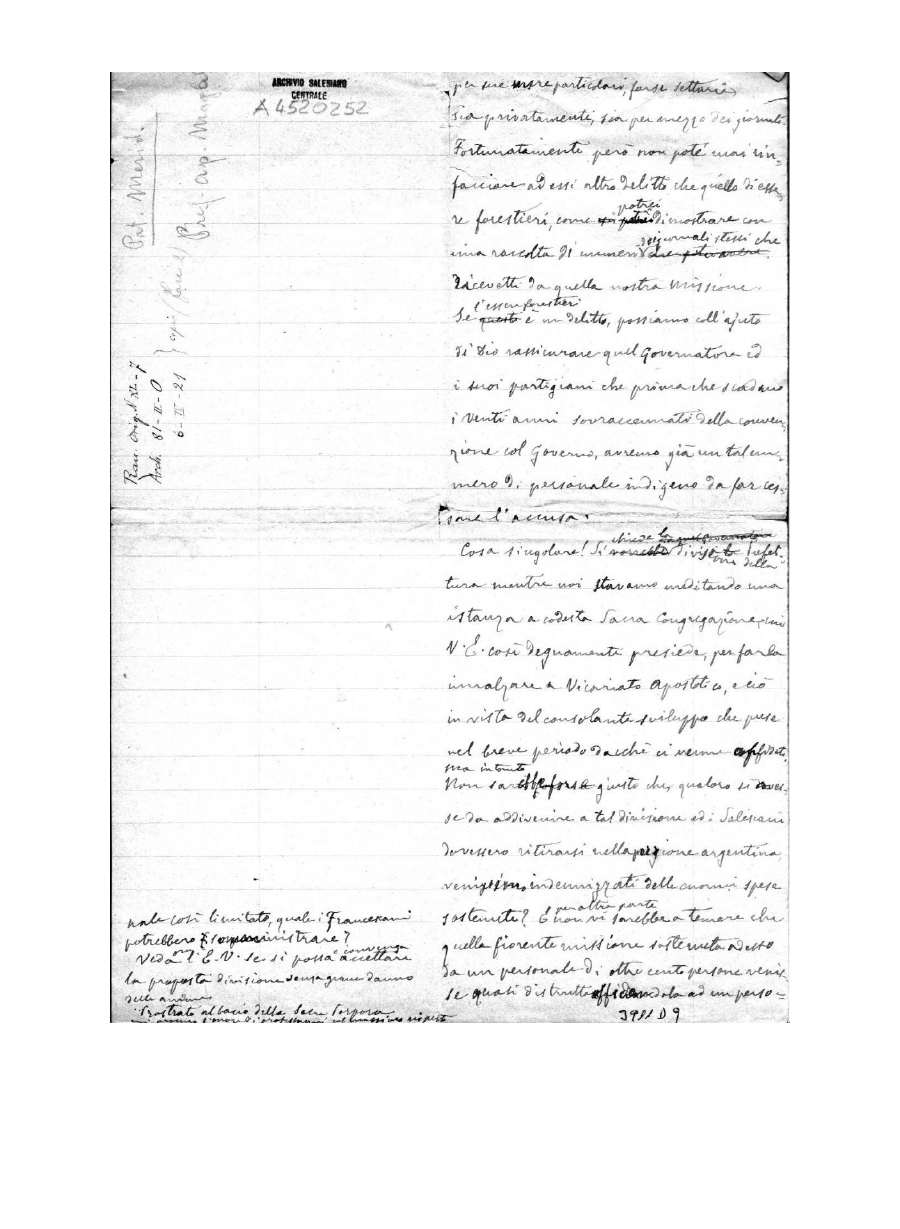 ARCHIVIO SALESIANO
CENTRALE
A4520252
Pat. Merid.
Pref. ap.
Arch. 81-II-0
6-II-21
per sue mire particolari, forse settarie,
sia privatamente, sia per mezzo dei giornali.
Fortunatamente però non poté mai rin-
facciare ad essi altro delitto che quello di esse-
re forestieri, come potrei dimostrare con
una raccolta di numeri dei giornali stessi che
ricevetti da quella nostra missione.
Se l'esser forestieri è un delitto, possiamo coll'ajuto
di Dio rassicurare quel Governatore ed
i suoi partigiani che prima che scadano
i venti anni sovraccennati della conven-
zione col Governo, avremo già un tal nu-
mero di personale indigeno da far ces-
sare l'accusa.
Cosa singolare! Si chiede la divisione della Prefet-
tura mentre noi stavamo meditando una
istanza a codesta Sacra Congregazione, cui
V. E. così degnamente presiede, per farla
innalzare a Vicariato Apostolico, e ciò
in vista del consolante sviluppo che prese
nel breve periodo dacché ci venne affidata.
Non sarebbe giusto che, qualora si doves-
se da addivenire a tal divisione ed i Salesiani
dovessero ritirarsi nella regione argentina,
venissero indennizzati delle enormi spese
sostenute? E per altra parte non vi sarebbe a temere che
quella fiorente missione sostenuta adesso
da un personale di oltre cento persone venis-
se quasi distrutta affidandola ad un perso-
nale così limitato, quale i Francescani
potrebbero somministrare?
Veda ora l'E. V. se si possa e convenga accettare
la proposta divisione senza grave danno
delle anime
Prostrato al bacio della Sacra Porpora
3982 D 9